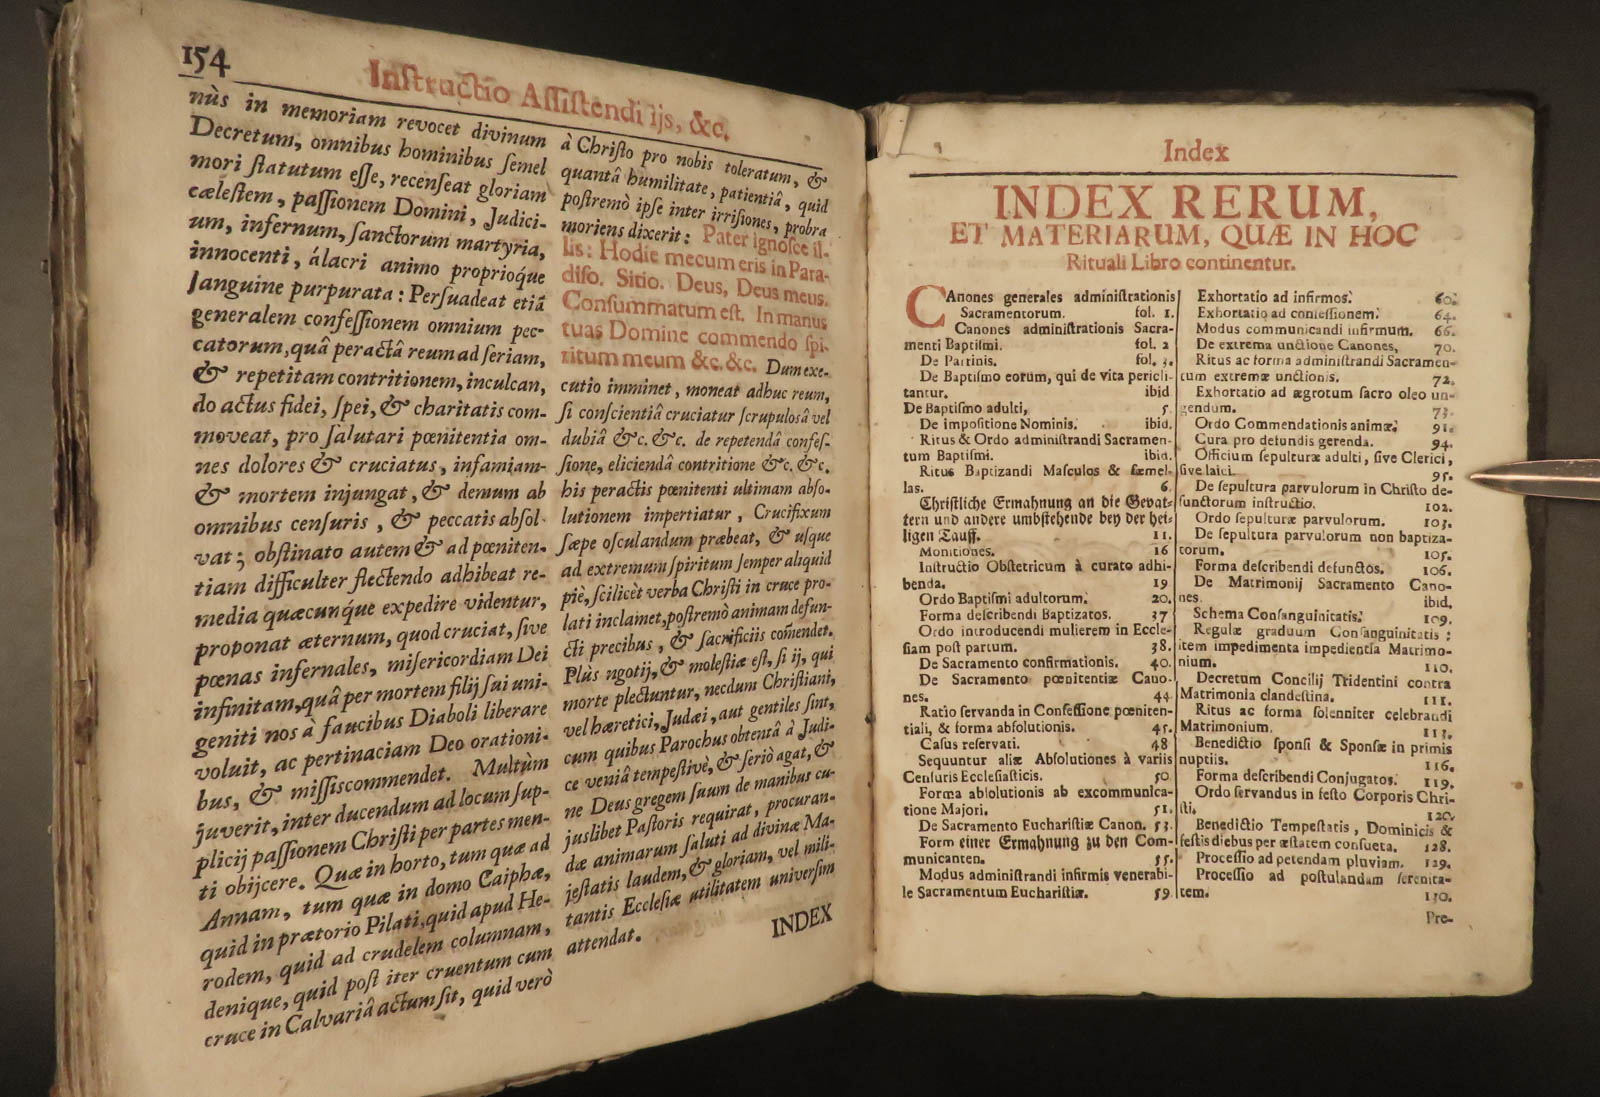 154
Inſtructio Aſſiſtendi ijs, &c.
nùs in memoriam revocet divinum
Decretum, omnibus hominibus ſemel
mori ſtatutum eſſe, recenſeat gloriam
cæleſtem, paſſionem Domini, Judici-
um, infernum, ſanctorum martyria,
innocenti, álacri animo proprioq́ue
ſanguine purpurata: Perſuadeat etiã
generalem confeſſionem omnium pec-
catorum, quâ peractâ reum ad ſeriam,
& repetitam contritionem, inculcan,
do actus fidei, ſpei, & charitatis com-
moveat, pro ſalutari pœnitentia om-
nes dolores & cruciatus, infamiam-
& mortem injungat, & demum ab
omnibus cenſuris, & peccatis abſol-
vat; obſtinato autem & ad pœniten-
tiam difficulter flectendo adhibeat re-
media quæcunq́ue expedire videntur,
proponat æternum, quod cruciat, ſive
pœnas infernales, miſericordiam Dei
infinitam, quâ per mortem filij ſui uni-
geniti nos à faucibus Diaboli liberare
voluit, ac pertinaciam Deo orationi-
bus, & miſſis commendet. Multùm
juverit, inter ducendum ad locum ſup-
plicij paſſionem Chriſti per partes men-
ti obijcere. Quæ in horto, tum quæ ad
Annam, tum quæ in domo Caiphæ,
quid in prætorio Pilati, quid apud He-
rodem, quid ad crudelem columnam,
denique, quid poſt iter cruentum cum
cruce in Calvariâ actum ſit, quid verò
à Chriſto pro nobis toleratum, &
quantâ humilitate, patientiâ, quid
poſtremò ipſe inter irriſiones, probra
moriens dixerit: Pater ignoſce il-
lis: Hodie mecum eris in Para-
diſo. Sitio. Deus, Deus meus.
Conſummatum eſt. In manus
tuas Domine commendo ſpi-
ritum meum &c. &c. Dum exe-
cutio imminet, moneat adhuc reum,
ſi conſcientiâ cruciatur ſcrupulosâ vel
dubiâ &c. &c. de repetendâ confeſ-
ſione, eliciendâ contritione &c. &c.
his peractis pœnitenti ultimam abſo-
lutionem impertiatur, Crucifixum
ſæpe oſculandum præbeat, & uſque
ad extremum ſpiritum ſemper aliquid
piè, ſcilicèt verba Chriſti in cruce pro-
lati inclamet, poſtremò animam defun-
cti precibus, & ſacrificiis com̃endet.
Plùs ngotij, & moleſtiæ eſt, ſi ij, qui
morte plectuntur, necdum Chriſtiani,
vel hæretici, Judæi, aut gentiles ſint,
cum quibus Parochus obtentâ à Judi-
ce veniâ tempeſtivè, & ſeriò agat, &
ne Deus gregem ſuum de manibus cu-
juslibet Paſtoris requirat, procuran-
dæ animarum ſaluti ad divinæ Ma-
jeſtatis laudem, & gloriam, vel mili-
tantis Eccleſiæ utilitatem univerſim
attendat.
INDEX
Index
INDEX RERUM,
ET MATERIARUM, QUÆ IN HOC
Rituali Libro continentur.
CAnones generales adminiſtrationis
Sacramentorum. fol. 1.
Canones adminiſtrationis Sacra-
menti Baptiſmi. fol. 2
De Patrinis. fol. 3.
De Baptiſmo eorum, qui de vita pericli-
tantur. ibid
De Baptiſmo adulti, 5.
De impoſitione Nominis. ibid.
Ritus & Ordo adminiſtrandi Sacramen-
tum Baptiſmi. ibid.
Ritus Baptizandi Maſculos & fæmel-
las. 6.
Chriſtliche Ermahnung an die Gevat-
tern und andere umbſtehende bey der hei-
ligen Tauff. 11.
Monitiones. 16
Inſtructio Obſtetricum à curato adhi-
benda. 19
Ordo Baptiſmi adultorum. 20.
Forma deſcribendi Baptizatos. 37
Ordo introducendi mulierem in Eccle-
ſiam poſt partum. 38.
De Sacramento confirmationis. 40.
De Sacramento pœnitentiæ Cano-
nes. 44
Ratio ſervanda in Confeſſione pœniten-
tiali, & forma abſolutionis. 45.
Caſus reſervati. 48
Sequuntur aliæ Abſolutiones à variis
Cenſuris Eccleſiaſticis. 50
Forma abſolutionis ab excommunica-
tione Majori. 51.
De Sacramento Euchariſtiæ Canon. 53.
Form einer Ermahnung zu den Com-
municanten. 55.
Modus adminiſtrandi infirmis venerabi-
le Sacramentum Euchariſtiæ. 59.
Exhortatio ad infirmos. 60.
Exhortatio ad confeſſionem. 64.
Modus communicandi infirmum. 66.
De extrema unctione Canones, 70.
Ritus ac forma adminiſtrandi Sacramen-
tum extremæ unctionis. 72.
Exhortatio ad ægrotum ſacro oleo un-
gendum. 73.
Ordo Commendationis animæ. 91.
Cura pro defunctis gerenda. 94.
Officium ſepulturæ adulti, ſive Clerici,
ſive laici. 95.
De ſepultura parvulorum in Chriſto de-
functorum inſtructio. 102.
Ordo ſepulturæ parvulorum. 103.
De ſepultura parvulorum non baptiza-
torum. 105.
Forma deſcribendi defunctos. 106.
De Matrimonij Sacramento Cano-
nes. ibid.
Schema Conſanguinitatis. 109.
Regulæ graduum Conſanguinitatis:
item impedimenta impedientia Matrimo-
nium. 110.
Decretum Concilij Tridentini contra
Matrimonia clandeſtina. 111.
Ritus ac forma ſolenniter celebrandi
Matrimonium. 113.
Benedictio ſponſi & Sponſæ in primis
nuptiis. 116.
Forma deſcribendi Conjugatos. 119.
Ordo ſervandus in feſto Corporis Chri-
ſti. 120.
Benedictio Tempeſtatis, Dominicis &
feſtis diebus per æſtatem conſueta. 128.
Proceſſio ad petendam pluviam. 129.
Proceſſio ad poſtulandam ſerenita-
tem. 130.
Pre-